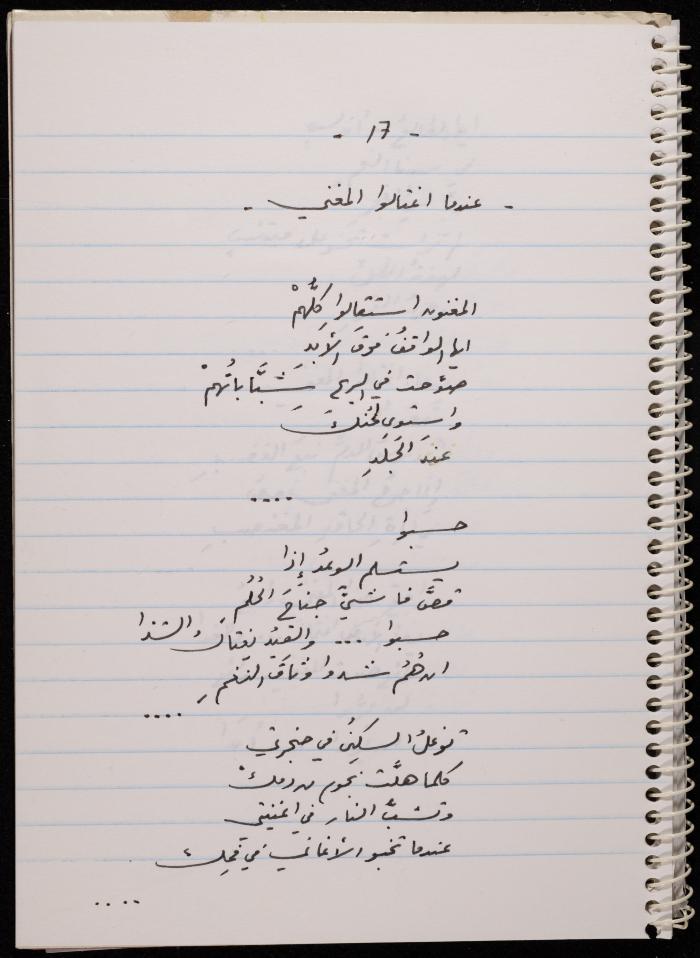 - 17 -
- عندما اغتالوا المغني -
المغنون استقالوا كلُّهُمْ
ايها الواقفُ فوقَ الأبدِ
صوّحت في الريح شَبَّاباتُهمْ
واستوى لحنُكَ
عندَ الجَلَدِ
....
حسبوا
يستسلم الوعدُ إذا
قصَّ فاشيٌّ جناحَ الحُلُم
حسبوا ... والقيدُ يغتالُ الشذا
ان هُمُ شدوا وثاقَ النغمِ
....
توغلُ السكينُ في حنجرتي
كلما هلَّت نجوم من دمكْ
وتشبُّ النار في اغنيتي
عندما تخبو الأغاني في فمك،
....